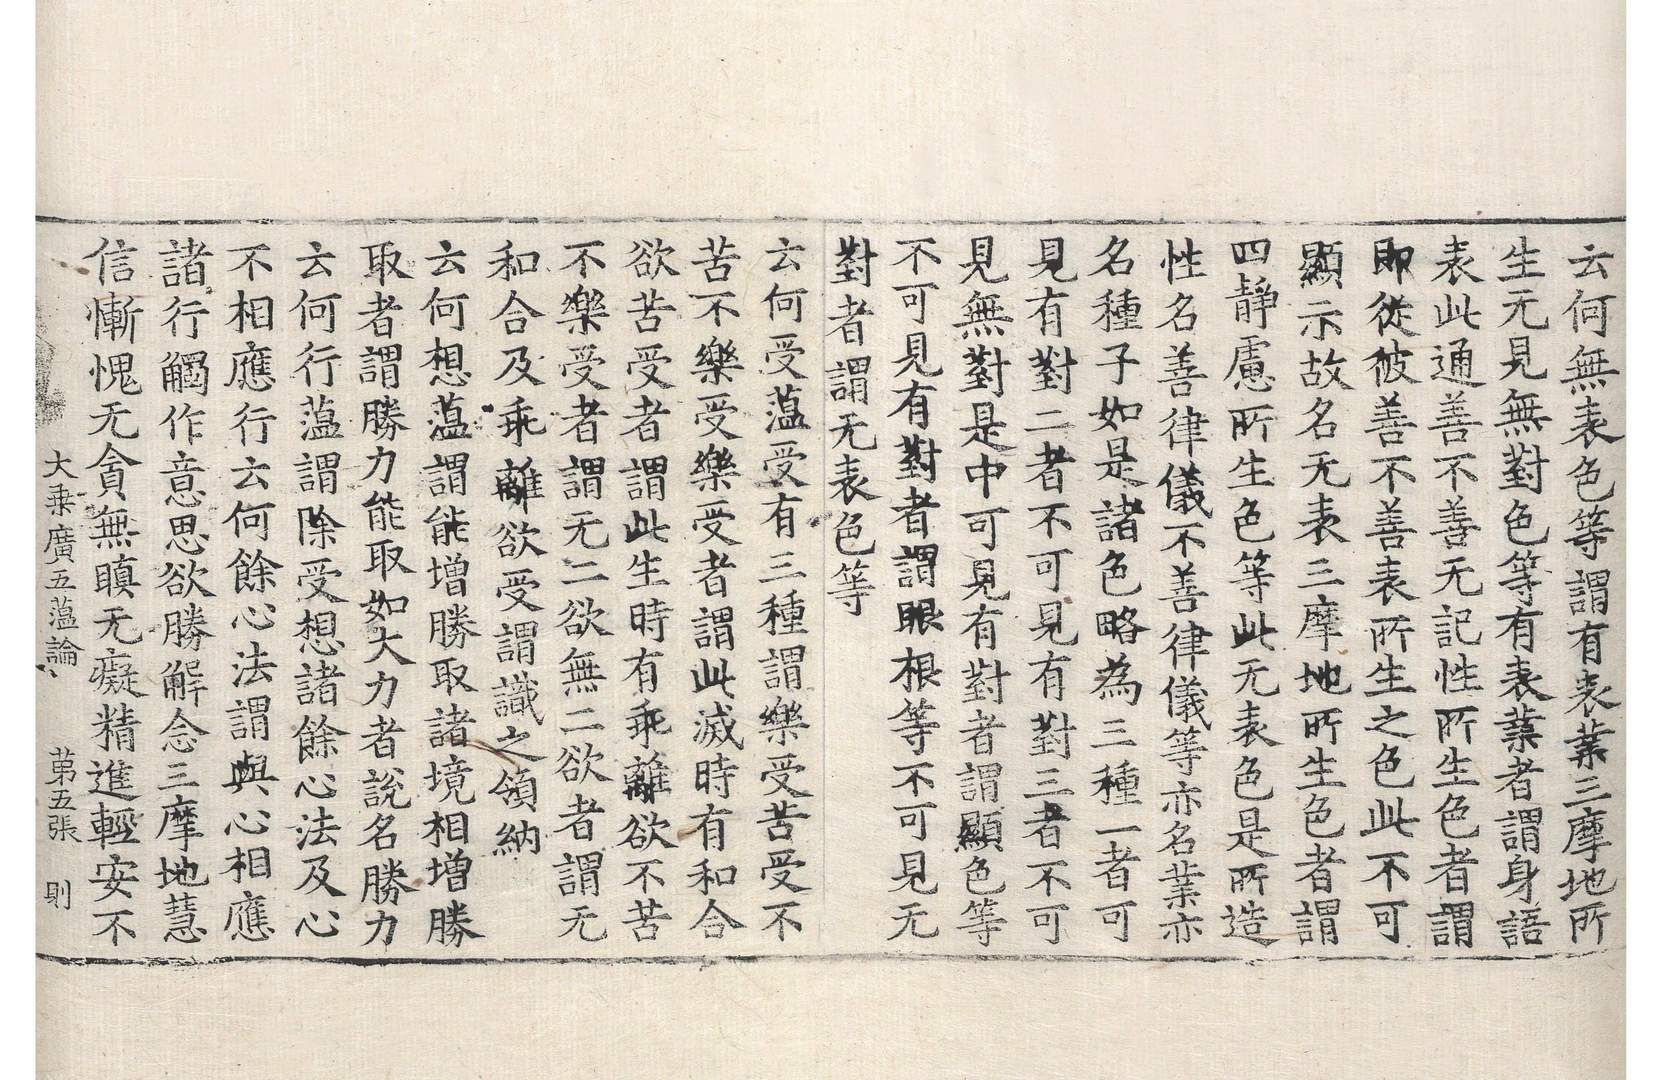 云何無表色等謂有表業三摩地所
生无見無對色等有表業者謂身語
表此通善不善无記性所生色者謂
即從彼善不善表所生之色此不可
顯示故名无表三摩地所生色者謂
四靜慮所生色等此无表色是所造
性名善律儀不善律儀等亦名業亦
名種子如是諸色略為三種一者可
見有對二者不可見有對三者不可
見無對是中可見有對者謂顯色等
不可見有對者謂眼根等不可見无
對者謂无表色等
云何受蕰受有三種謂樂受苦受不
苦不樂受樂受者謂此滅時有和合
欲苦受者謂此生時有乖離欲不苦
不樂受者謂无二欲無二欲者謂无
和合及乖離欲受謂識之領納
云何想蕰謂能增勝取諸境相增勝
取者謂勝力能取如大力者說名勝力
云何行蕰謂除受想諸餘心法及心
不相應行云何餘心法謂與心相應
諸行觸作意思欲勝解念三摩地慧
信慚愧无貪無瞋无癡精進輕安不
大乗廣五蕰論 苐五張 則